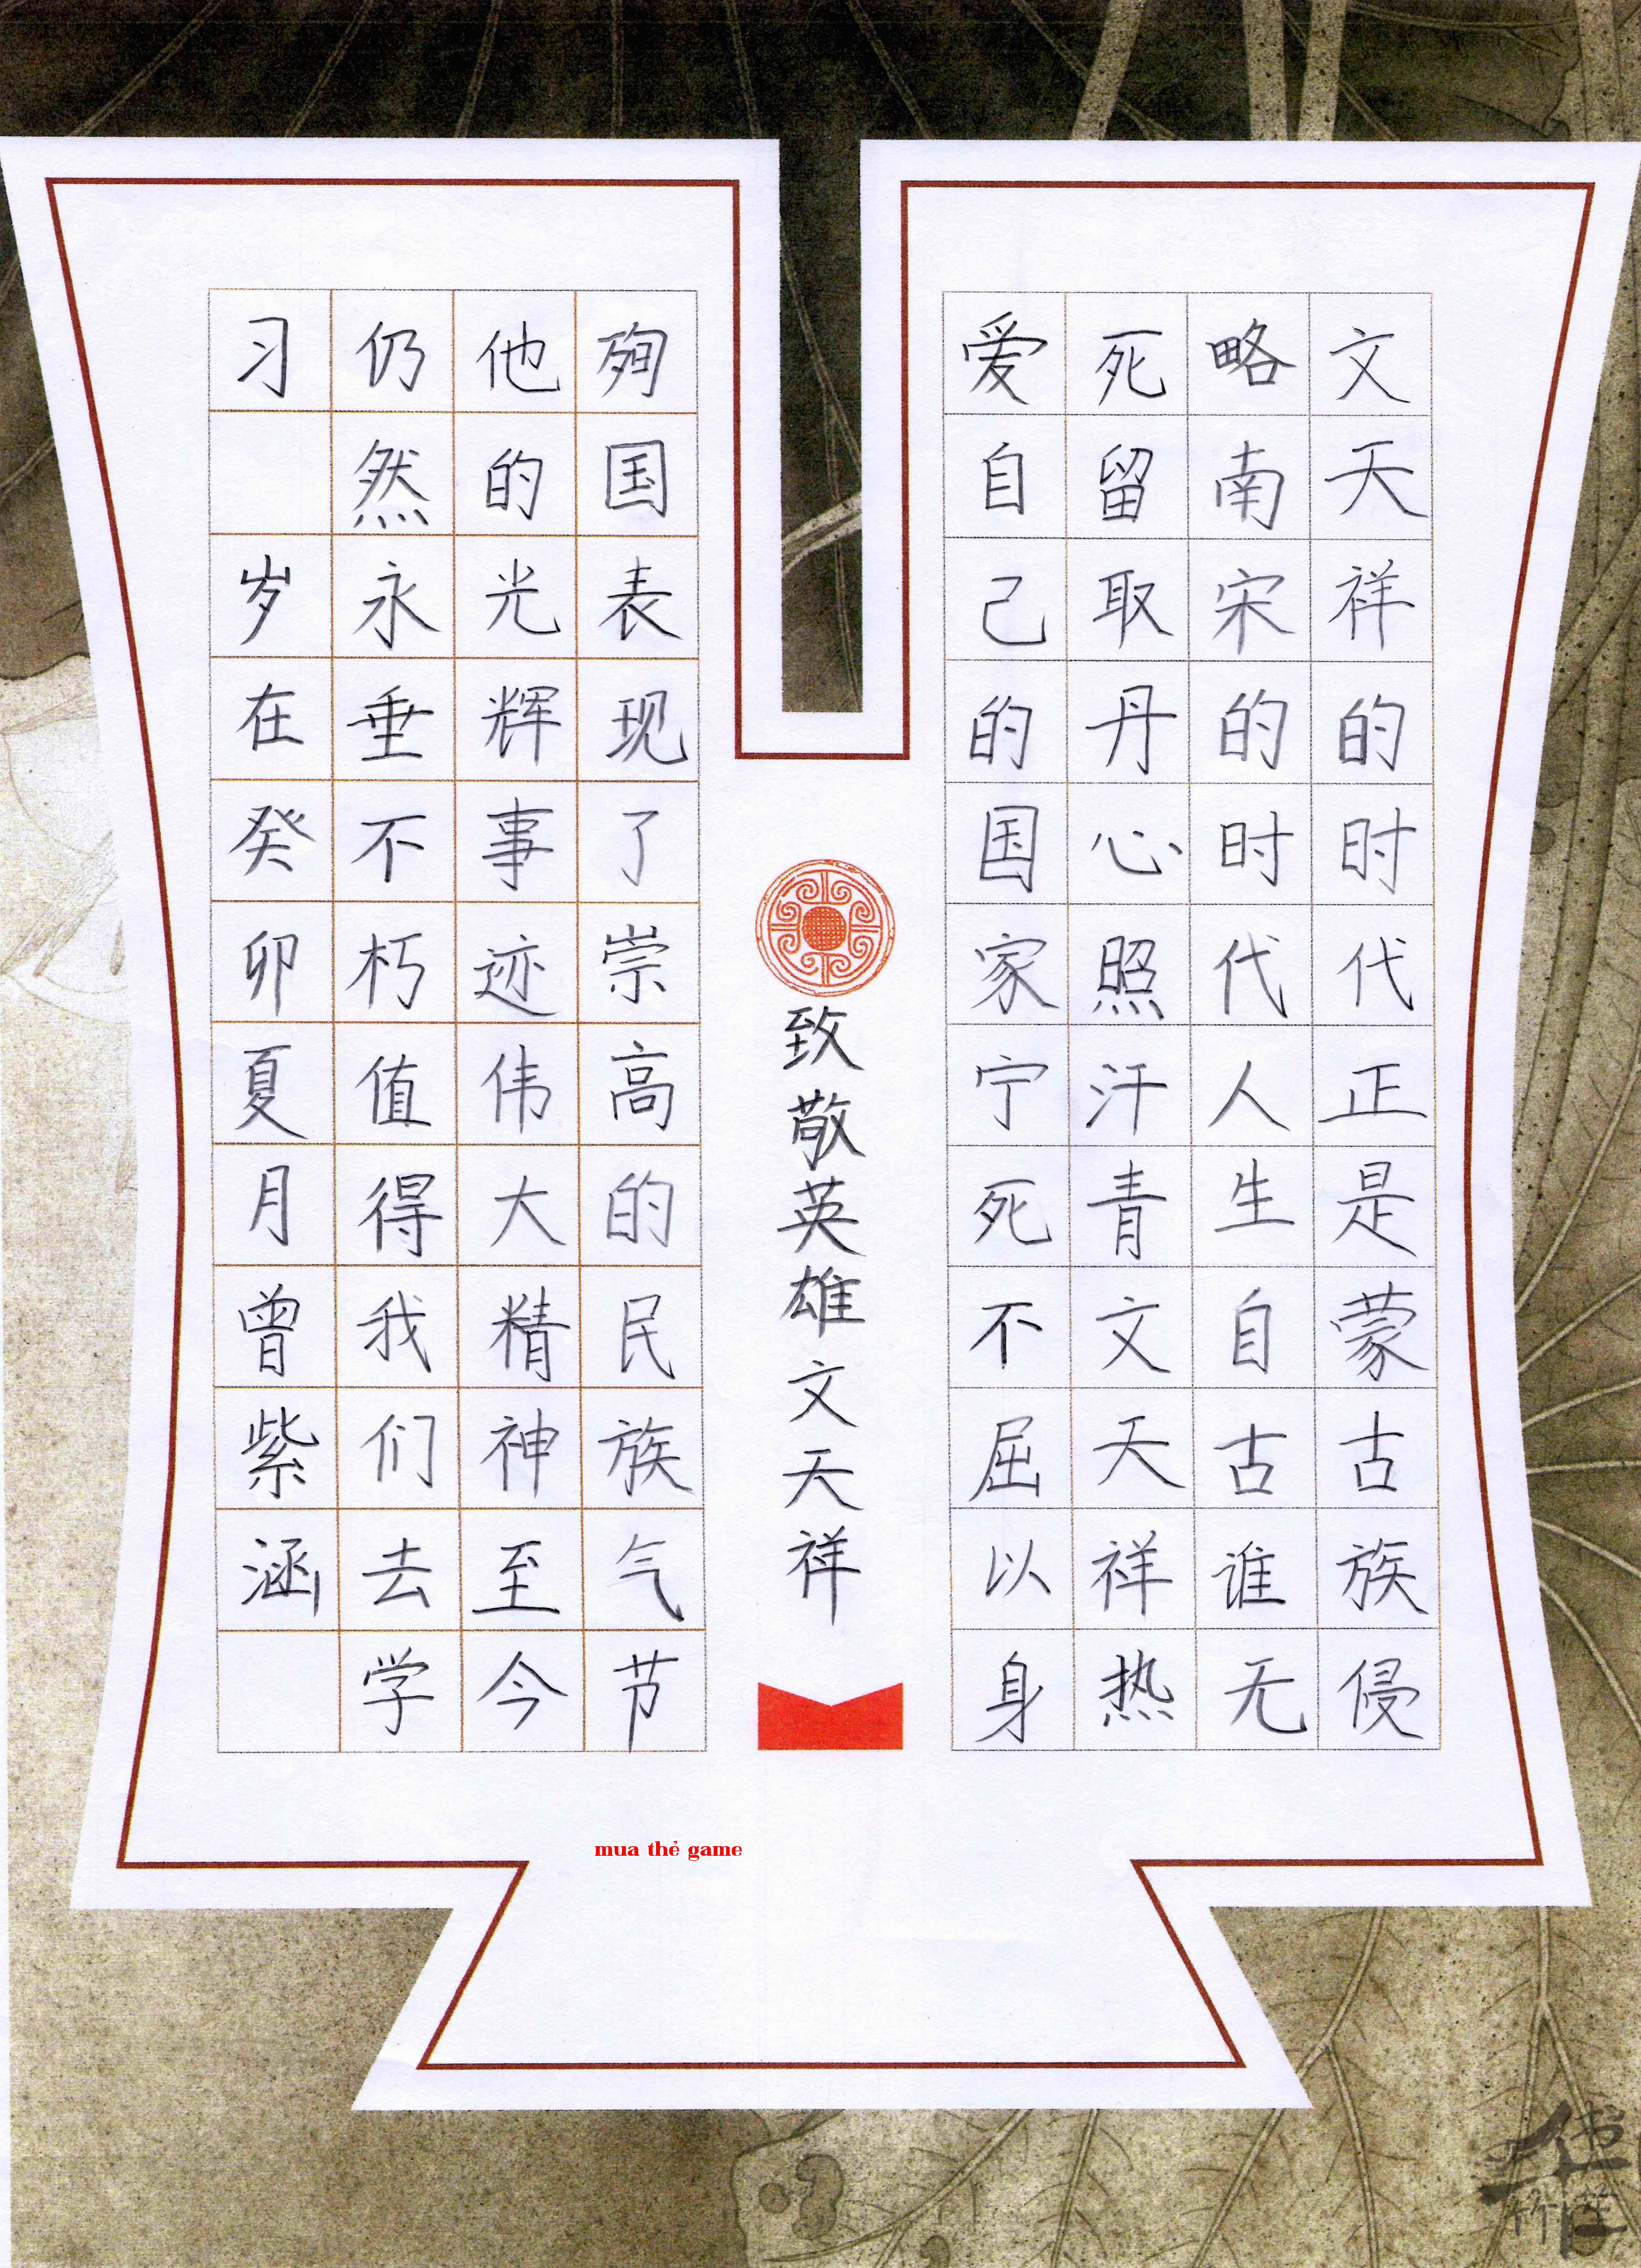 文天祥的时代正是蒙古族侵
略南宋的时代人生自古谁无
死留取丹心照汗青文天祥热
爱自己的国家宁死不屈以身
致敬英雄文天祥
殉国表现了崇高的民族气节
他的光辉事迹伟大精神至今
仍然永垂不朽值得我们去学
习 岁在癸卯夏月曾紫涵
mua thẻ game